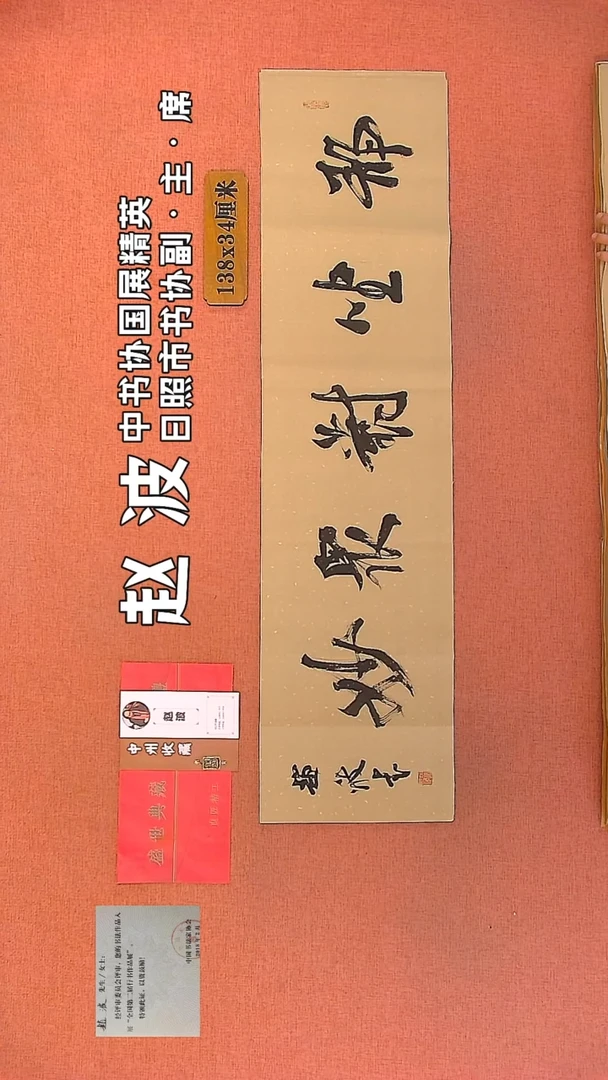 赵 波
中书协国展精英
日照市书协副·主·席
138x34厘米
靜坐觀眾妙
趙波書
中州收藏
赵波
盛世典藏
赵波 先生/女士：
经评审委员会评审，您的书法作品入
“全国第二届行书作品展”。
特颁此证，以资鼓励！
中国书法家协会